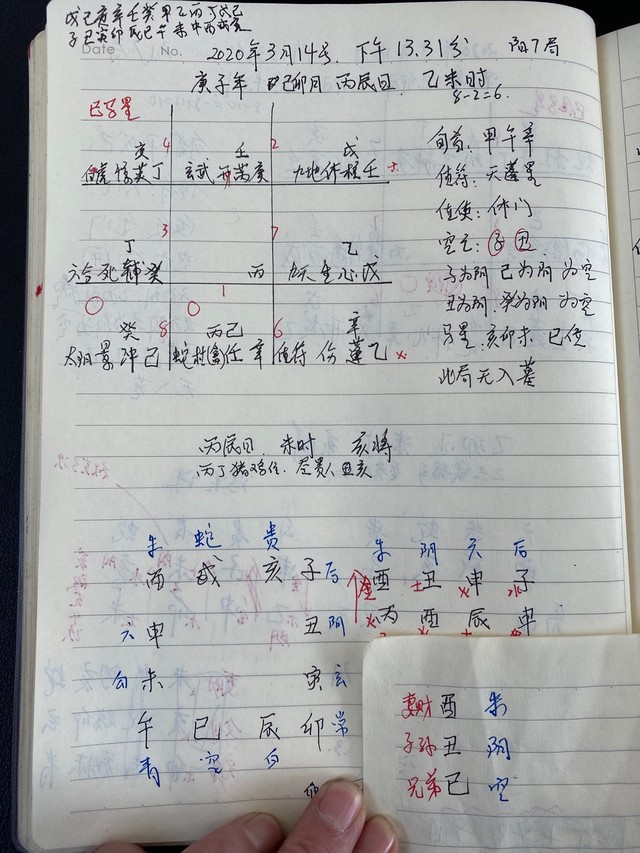 戊己庚辛壬癸甲乙丙丁戊己
子丑寅卯辰巳午未申酉戌亥
Date No. 2020年3月14号. 下午 13.31分 阳7局
庚子年 己卯月 丙辰日. 乙未时
8-2=6.
巳马星
旬首: 甲午辛
值符: 天蓬星
值使: 休门
空亡: 子 丑
子为阴 己为阴 为空
丑为阴. 癸为阴 为空
马星: 亥卯未 巳位
此局无入墓
4 壬 2 戊
白虎 惊英丁 玄武 庚 九地休 壬
丁 3 7 乙
六合死辅癸 丙 九天生心戊
1
癸 8 丙己 6 辛
太阴景冲己 蛇杜 任辛 值符伤蓬乙
丙辰日. 未时 亥将
丙丁猪鸡位. 昼贵人丑亥
朱 蛇 贵 朱 阴 六 后
酉 戌 亥 子 后 酉 丑 申 子
六 申 丑 阴 丙 酉 辰 申
勾 未 寅 玄
午 巳 辰 卯 常
青 空 白
妻财 酉 朱
子孙 丑 阴
兄弟 巳 空